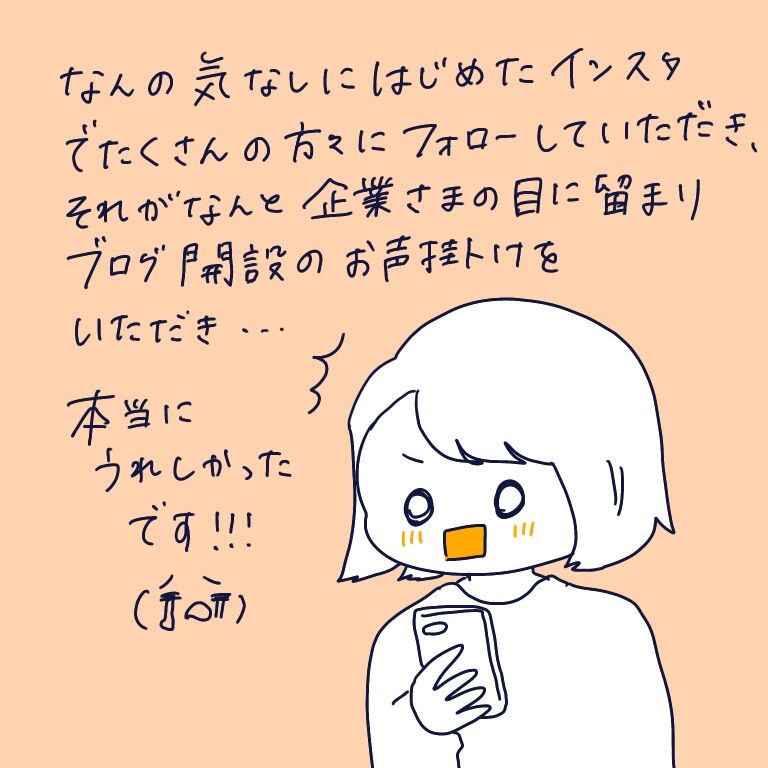 なんの気なしにはじめたインスタ
でたくさんの方々にフォローしていただき、
それがなんと企業さまの目に留まり
ブログ開設のお声掛けを
いただき...
本当に
うれしかった
です!!!